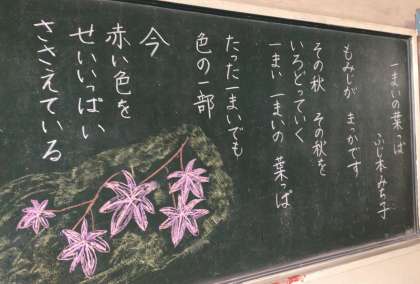 一まいの葉っぱ
ふじ木みち子
もみじが まっかです
その秋 その秋を
いろどっていく
一まい 一まいの 葉っぱ
たった一まいでも
色の一部
今
赤い色を
せいいっぱい
ささえている